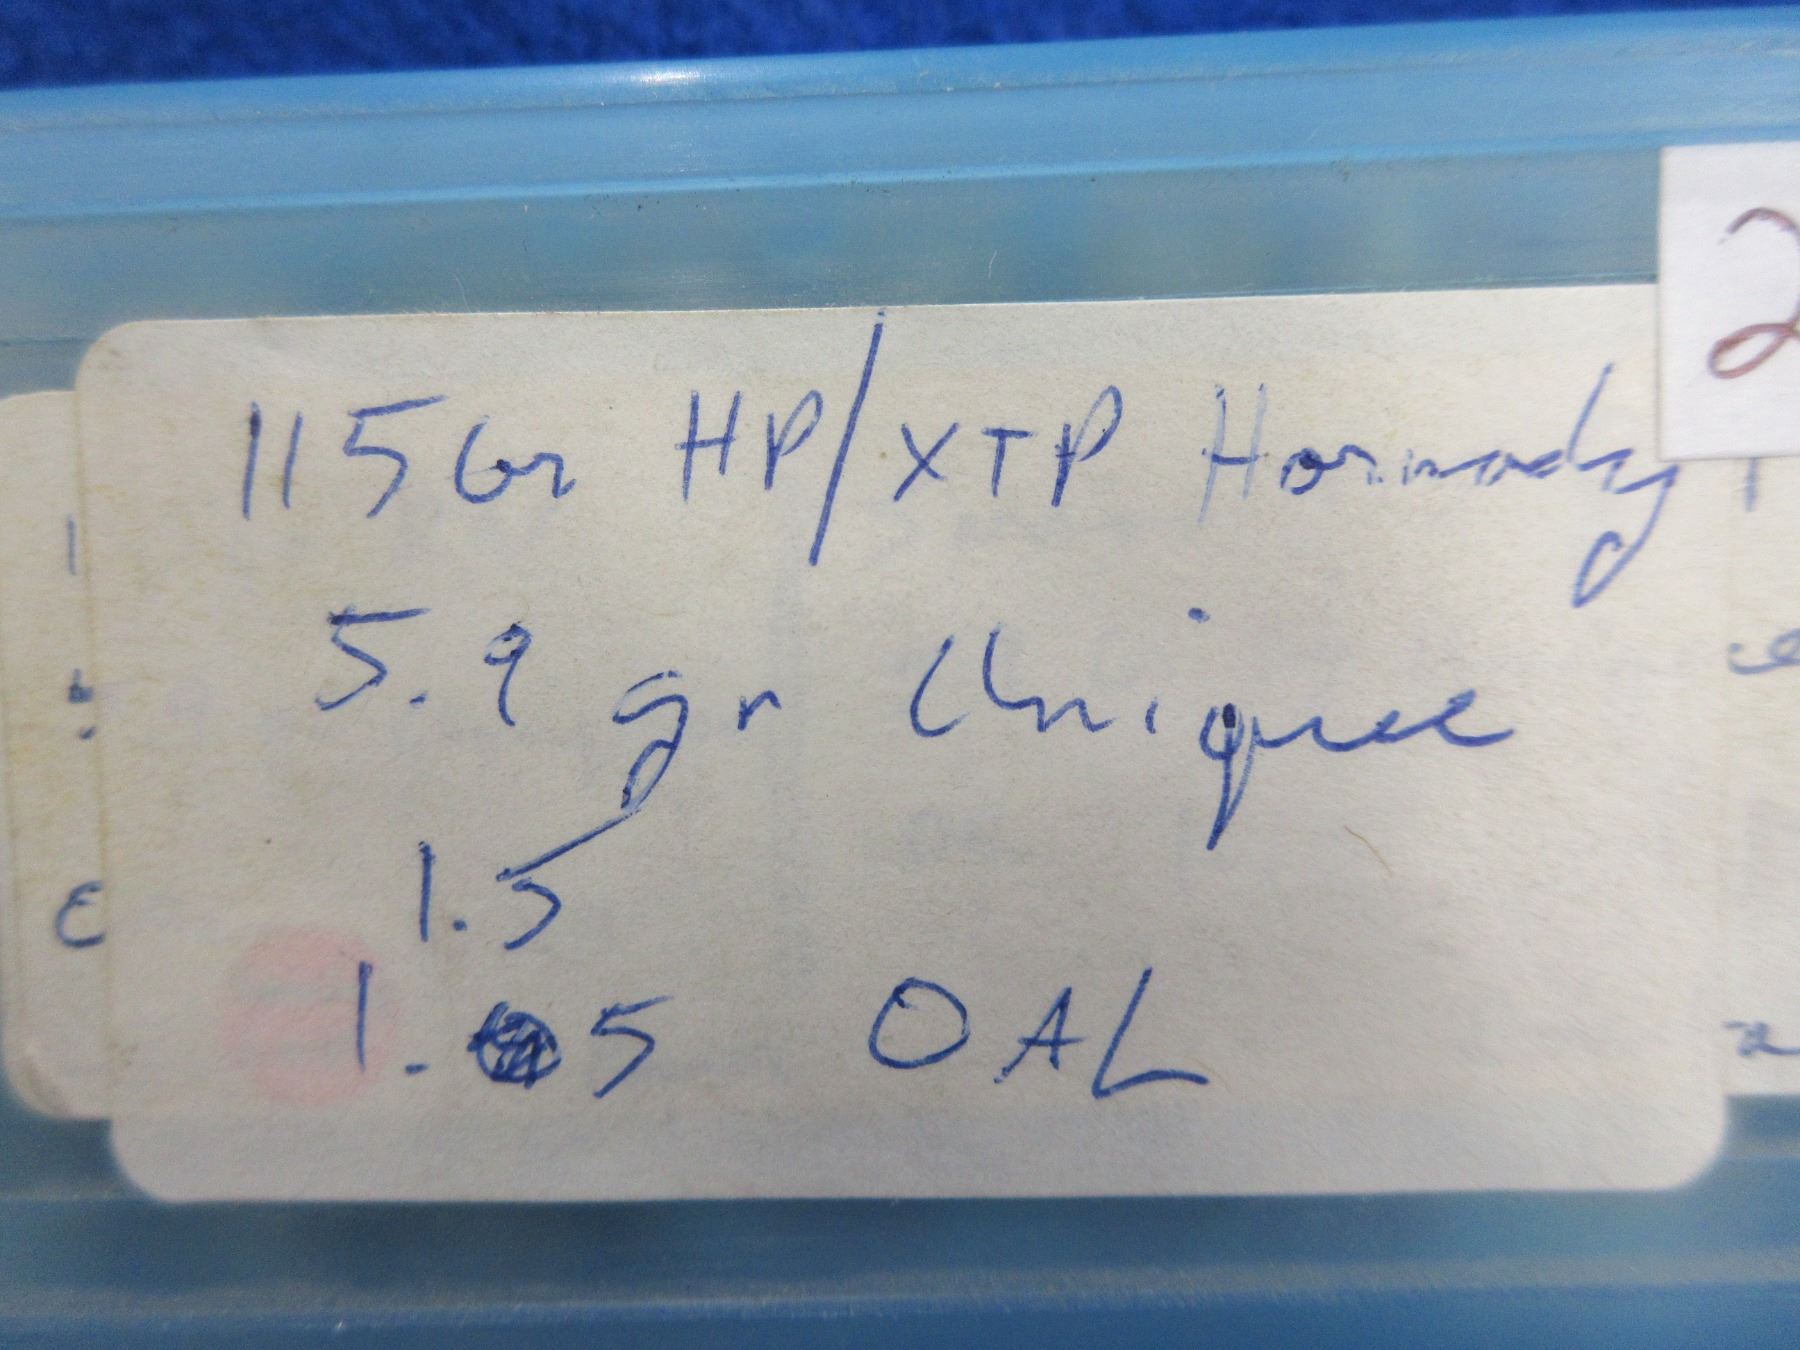 115 Gr HP/XTP Hornady
2
5.9 gr Unique
1.5
1.05 OAL